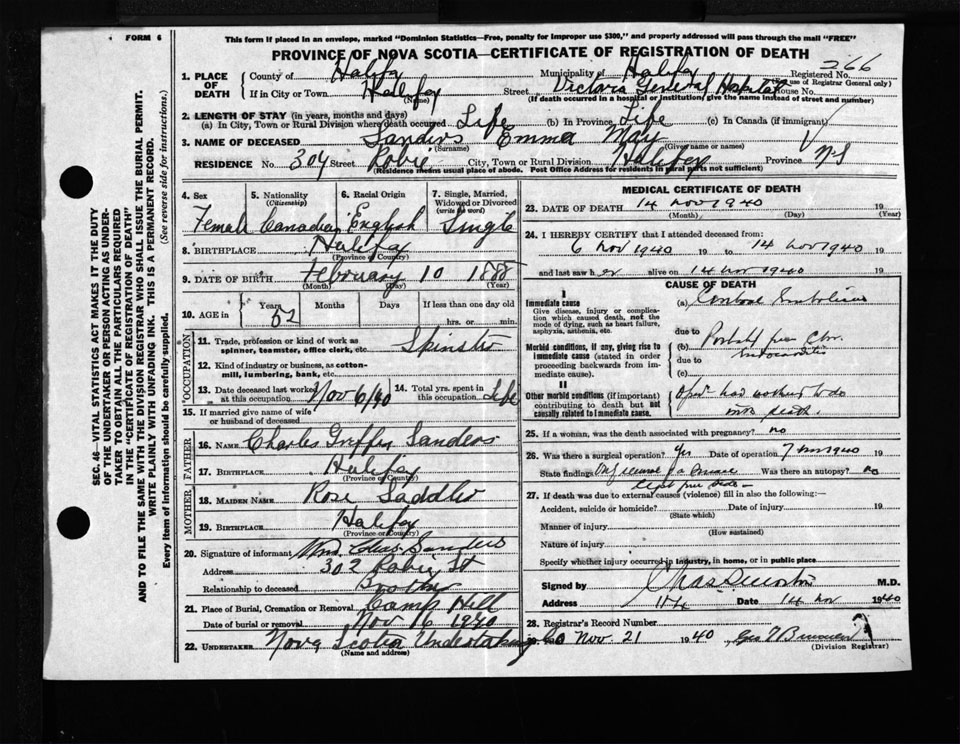 FORM 6
This form if placed in an envelope, marked "Dominion Statistics—Free, penalty for improper use $300," and properly addressed will pass through the mail "FREE"
PROVINCE OF NOVA SCOTIA—CERTIFICATE OF REGISTRATION OF DEATH
SEC. 46—VITAL STATISTICS ACT MAKES IT THE DUTY
OF THE UNDERTAKER OR PERSON ACTING AS UNDER-
TAKER TO OBTAIN ALL THE PARTICULARS REQUIRED
IN THE "CERTIFICATE OF REGISTRATION OF DEATH"
AND TO FILE THE SAME WITH THE DIVISION REGISTRAR WHO SHALL ISSUE THE BURIAL PERMIT.
WRITE PLAINLY WITH UNFADING INK. THIS IS A PERMANENT RECORD.
Every item of information should be carefully supplied. (See reverse side for instructions.)
1. PLACE OF DEATH County of Halifax Municipality of Halifax Registered No. 266
(use of Registrar General only)
If in City or Town Halifax (Name) Street Victoria General Hospital House No.
(If death occurred in a hospital or institution, give the name instead of street and number)
2. LENGTH OF STAY (in years, months and days)
(a) In City, Town or Rural Division where death occurred Life (b) In Province Life (c) In Canada (if immigrant)
3. NAME OF DECEASED Sanders Emma May
(Surname) (Given name or names)
RESIDENCE No. 304 Street Robie City, Town or Rural Division Halifax Province NS
(Residence means usual place of abode. Post Office Address for residents in rural parts not sufficient)
4. Sex Female
5. Nationality (Citizenship) Canadian
6. Racial Origin English
7. Single, Married, Widowed or Divorced (write the word) Single
8. BIRTHPLACE Halifax
(Province or Country)
9. DATE OF BIRTH February 10 1888
(Month) (Day) (Year)
10. AGE in Years 52 Months Days If less than one day old hrs. or min.
OCCUPATION
11. Trade, profession or kind of work as spinner, teamster, office clerk, etc. Spinster
12. Kind of industry or business, as cotton-mill, lumbering, bank, etc.
13. Date deceased last worked at this occupation Nov 6/40
14. Total yrs. spent in this occupation Life
15. If married give name of wife or husband of deceased
FATHER
16. NAME Charles Griffin Sanders
17. BIRTHPLACE Halifax
(Province or Country)
MOTHER
18. MAIDEN NAME Rose
19. BIRTHPLACE Halifax
(Province or Country)
20. Signature of informant Chas. Sanders
Address 302 Robie St
Relationship to deceased Brother
21. Place of Burial, Cremation or Removal Camp Hill
Date of burial or removal Nov 16 1940
22. UNDERTAKER Nova Scotia Undertaking Co
(Name and address)
MEDICAL CERTIFICATE OF DEATH
23. DATE OF DEATH 14 Nov 1940
(Month) (Day) (Year)
24. I HEREBY CERTIFY that I attended deceased from:
6 Nov 1940 19 to 14 Nov 1940 19
and last saw her alive on 14 Nov 1940 19
CAUSE OF DEATH
I
Immediate cause
Give disease, injury or complication which caused death, not the mode of dying, such as heart failure, asphyxia, asthenia, etc.
(a) Embolism
due to
Morbid conditions, if any, giving rise to immediate cause (stated in order proceeding backwards from immediate cause).
(b)
due to
(c)
II
Other morbid conditions (if important) contributing to death but not causally related to immediate cause.
Oper had nothing to do
with death.
25. If a woman, was the death associated with pregnancy? no
26. Was there a surgical operation? Yes Date of operation 7 Nov 1940 19
State findings Was there an autopsy? no
27. If death was due to external causes (violence) fill in also the following:—
Accident, suicide or homicide? Date of injury 19
(State which)
Manner of injury
(How sustained)
Nature of injury
Specify whether injury occurred in industry, in home, or in public place
Signed by Chas M.D.
Address Hfx Date 14 Nov 1940
28. Registrar's Record Number
Nov. 21 1940
(Division Registrar)